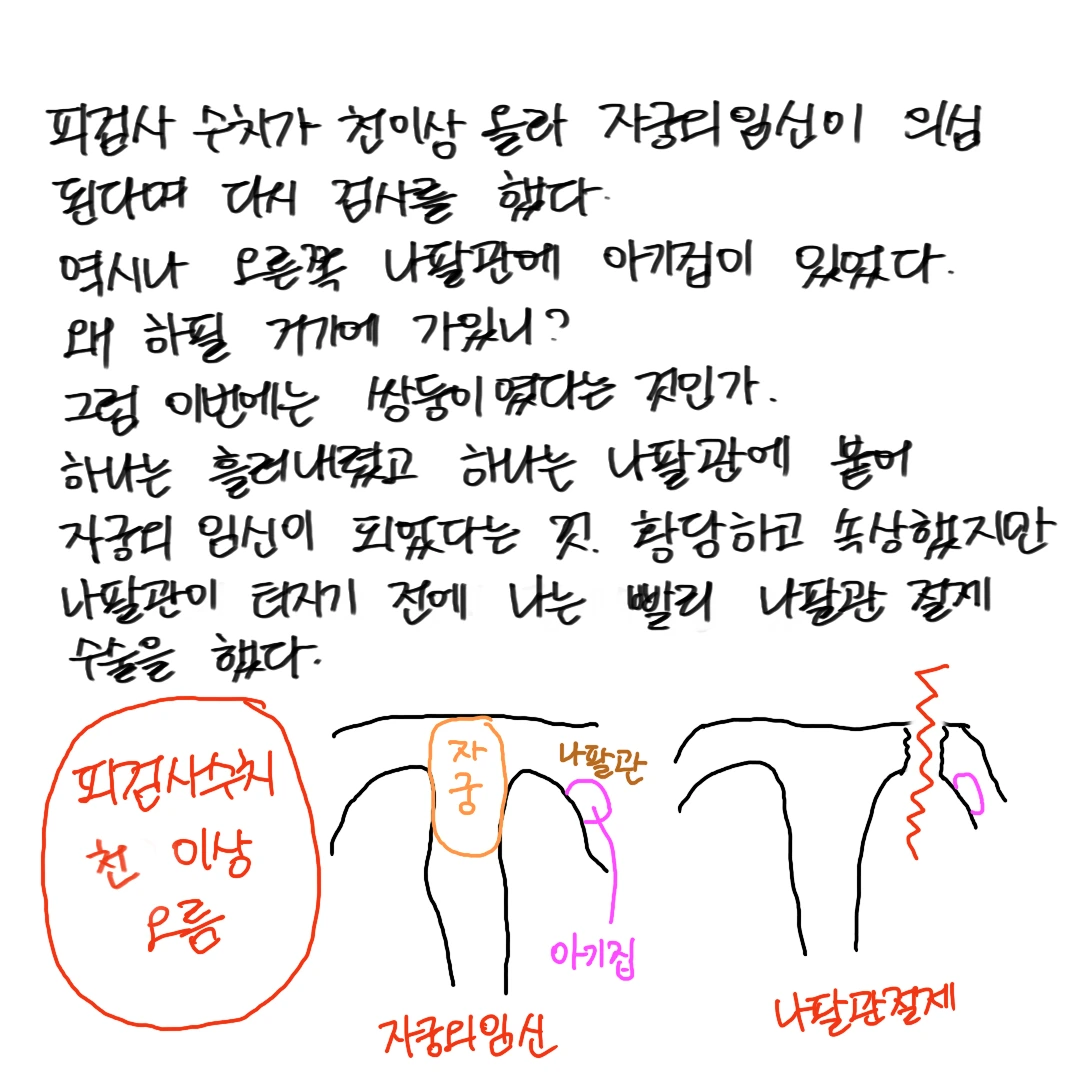 피검사 수치가 천이상 올라 자궁외임신이 의심
된다며 다시 검사를 했다.
역시나 오른쪽 나팔관에 아기집이 있었다.
왜 하필 거기에 가있니?
그럼 이번에는 쌍둥이였다는 것인가.
하나는 흘러내렸고 하나는 나팔관에 붙어
자궁외 임신이 되었다는 것. 황당하고 속상했지만
나팔관이 터지기 전에 나는 빨리 나팔관 절제
수술을 했다.
피검사수치
천 이상
오름
자
궁
나팔관
아기집
자궁외임신
나팔관절제